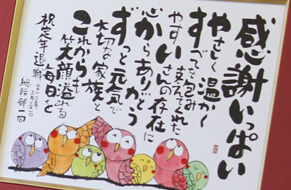 感謝いっぱい
やさしく温かく
すべてを包み
やすい支えてくれた
さんの存在に
心からありがとう
ずっと元気で
大切な家族と
これからも
笑顔溢れる
毎日を
祝定年退職
総務部一同